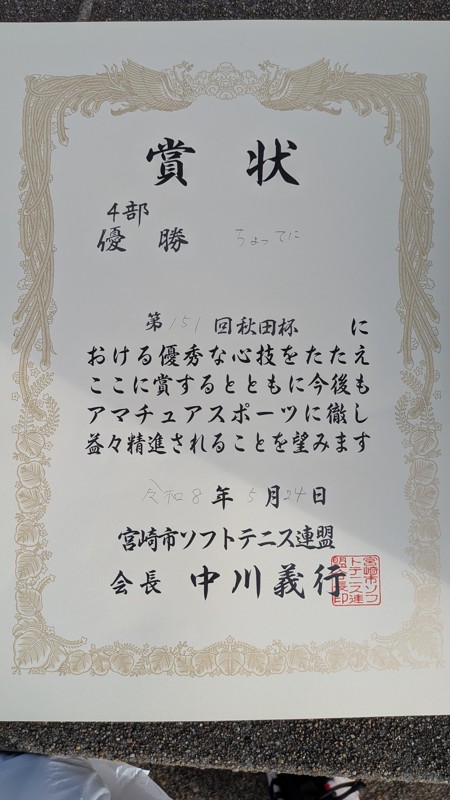 賞状
4部
優勝 ちょってに
第151回秋田杯 に
おける優秀な心技をたたえ
ここに賞するとともに今後も
アマチュアスポーツに徹し
益々精進されることを望みます
令和8年5月24日
宮崎市ソフトテニス連盟
会長 中川義行
宮崎市ソフ
トテニス連
盟会長印